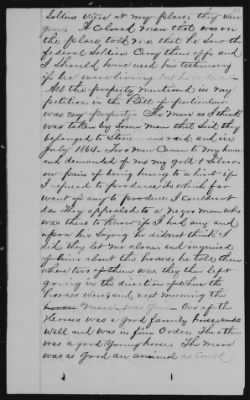 Soldiers were at my place they were
gone. A Colored man that was on
the place told me that he saw the
federal Soldiers Carry them off and
I Should have used his testimony
if he were living but he is dead
All the property mentioned in my
petition in the Bill of particulars
was my property. The mare as I think
was taken by some men that said they
belonged to Stonemans raid, and in
July 1864. Two men Came to my house
and demanded of me my gold & Silver
on pain of being hung to a limb if
I refused to produce it which for
want of any to produce I could not
do. They appealed to a Negro man who
was there to know if I had any and
upon his Saying he did not think I
did they let me alone and inquired
of him about the horses, he told them
where two of them was they then left
going in the direction of where the
horses were and next morning the
mare was gone. One of the
Horses was a good family horse
well and was in fine Order. The other
was a good young horse. The Mare
was as good an animal as could